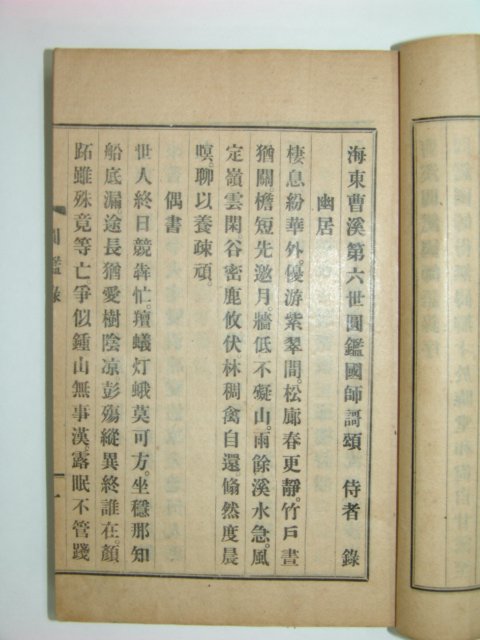 海東曹溪第六世圓鑑國師謌頌　侍者　錄
幽居
棲息紛華外。優游紫翠間。松廊春更靜。竹戶晝
猶關。檐短先邀月。牆低不礙山。雨餘溪水急。風
定嶺雲閑。谷密鹿攸伏。林稠禽自還。翛然度晨
暝。聊以養疎頑。
偶書
世人終日競犇忙。羶蟻灯蛾莫可方。坐穩那知
船底漏。途長猶愛樹陰凉。彭殤縱異終誰在。顏
跖雖殊竟等亡。爭似鍾山無事漢。露眠不管踐
圓鑑錄
一